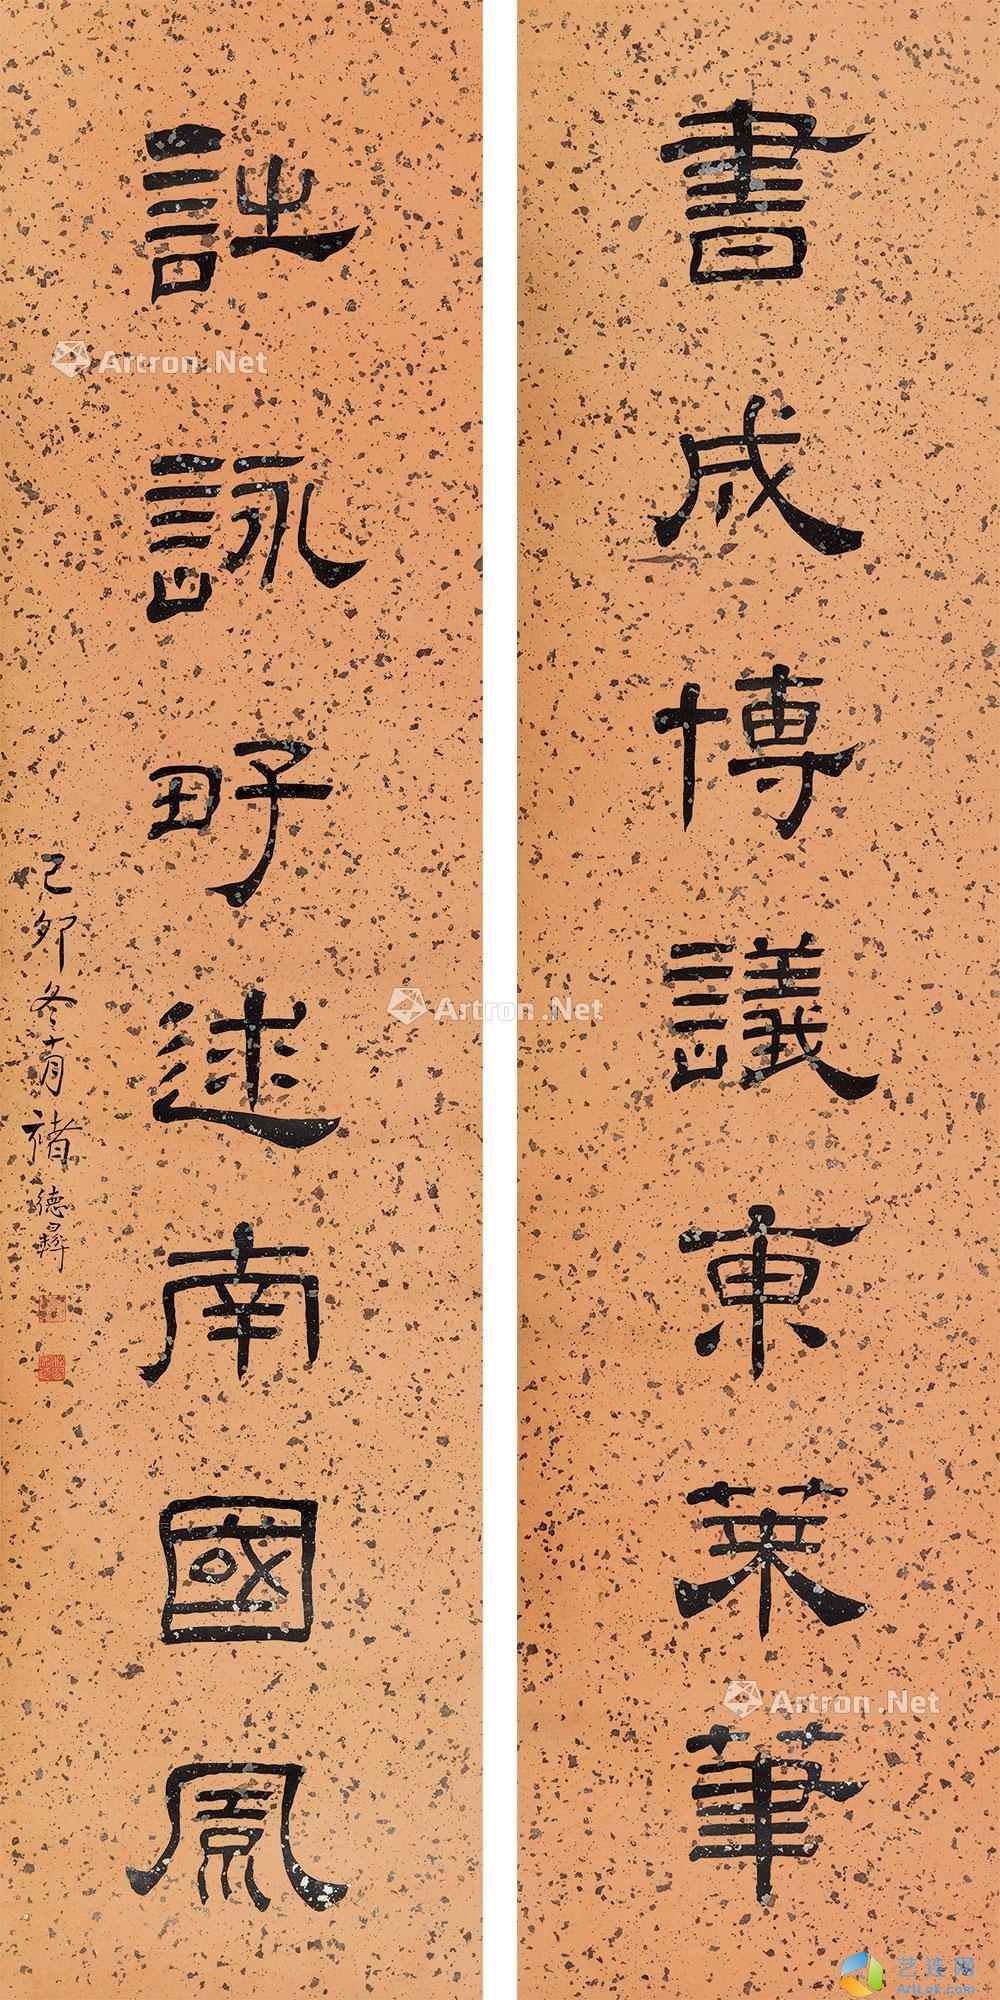 書成博議東萊筆
詩詠野遊南國風
己卯冬十月 褚德彝
Artron.Net
Artron.Net
Artron.Net
艺连网
ArtLnk.com